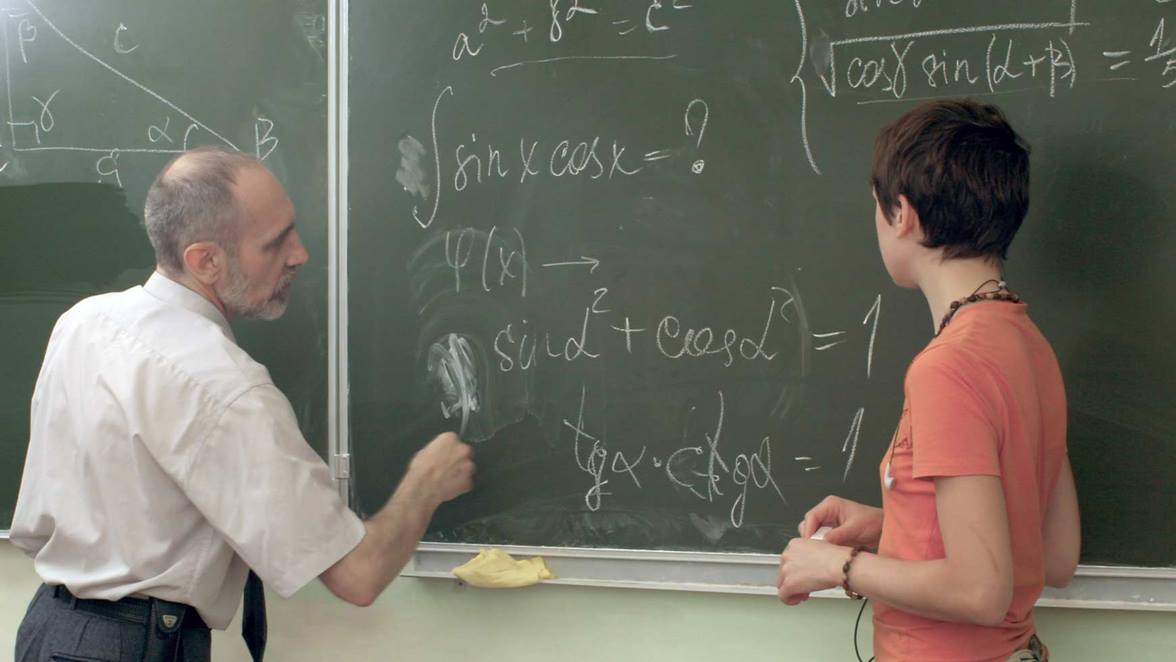 β c
γ α B
a
a² + b² = c²
∫ sin x cos x = ?
φ(x) →
sin α² + cos α² = 1
tg α · ctg α = 1
√cosγ sin(α+β) = 1/5